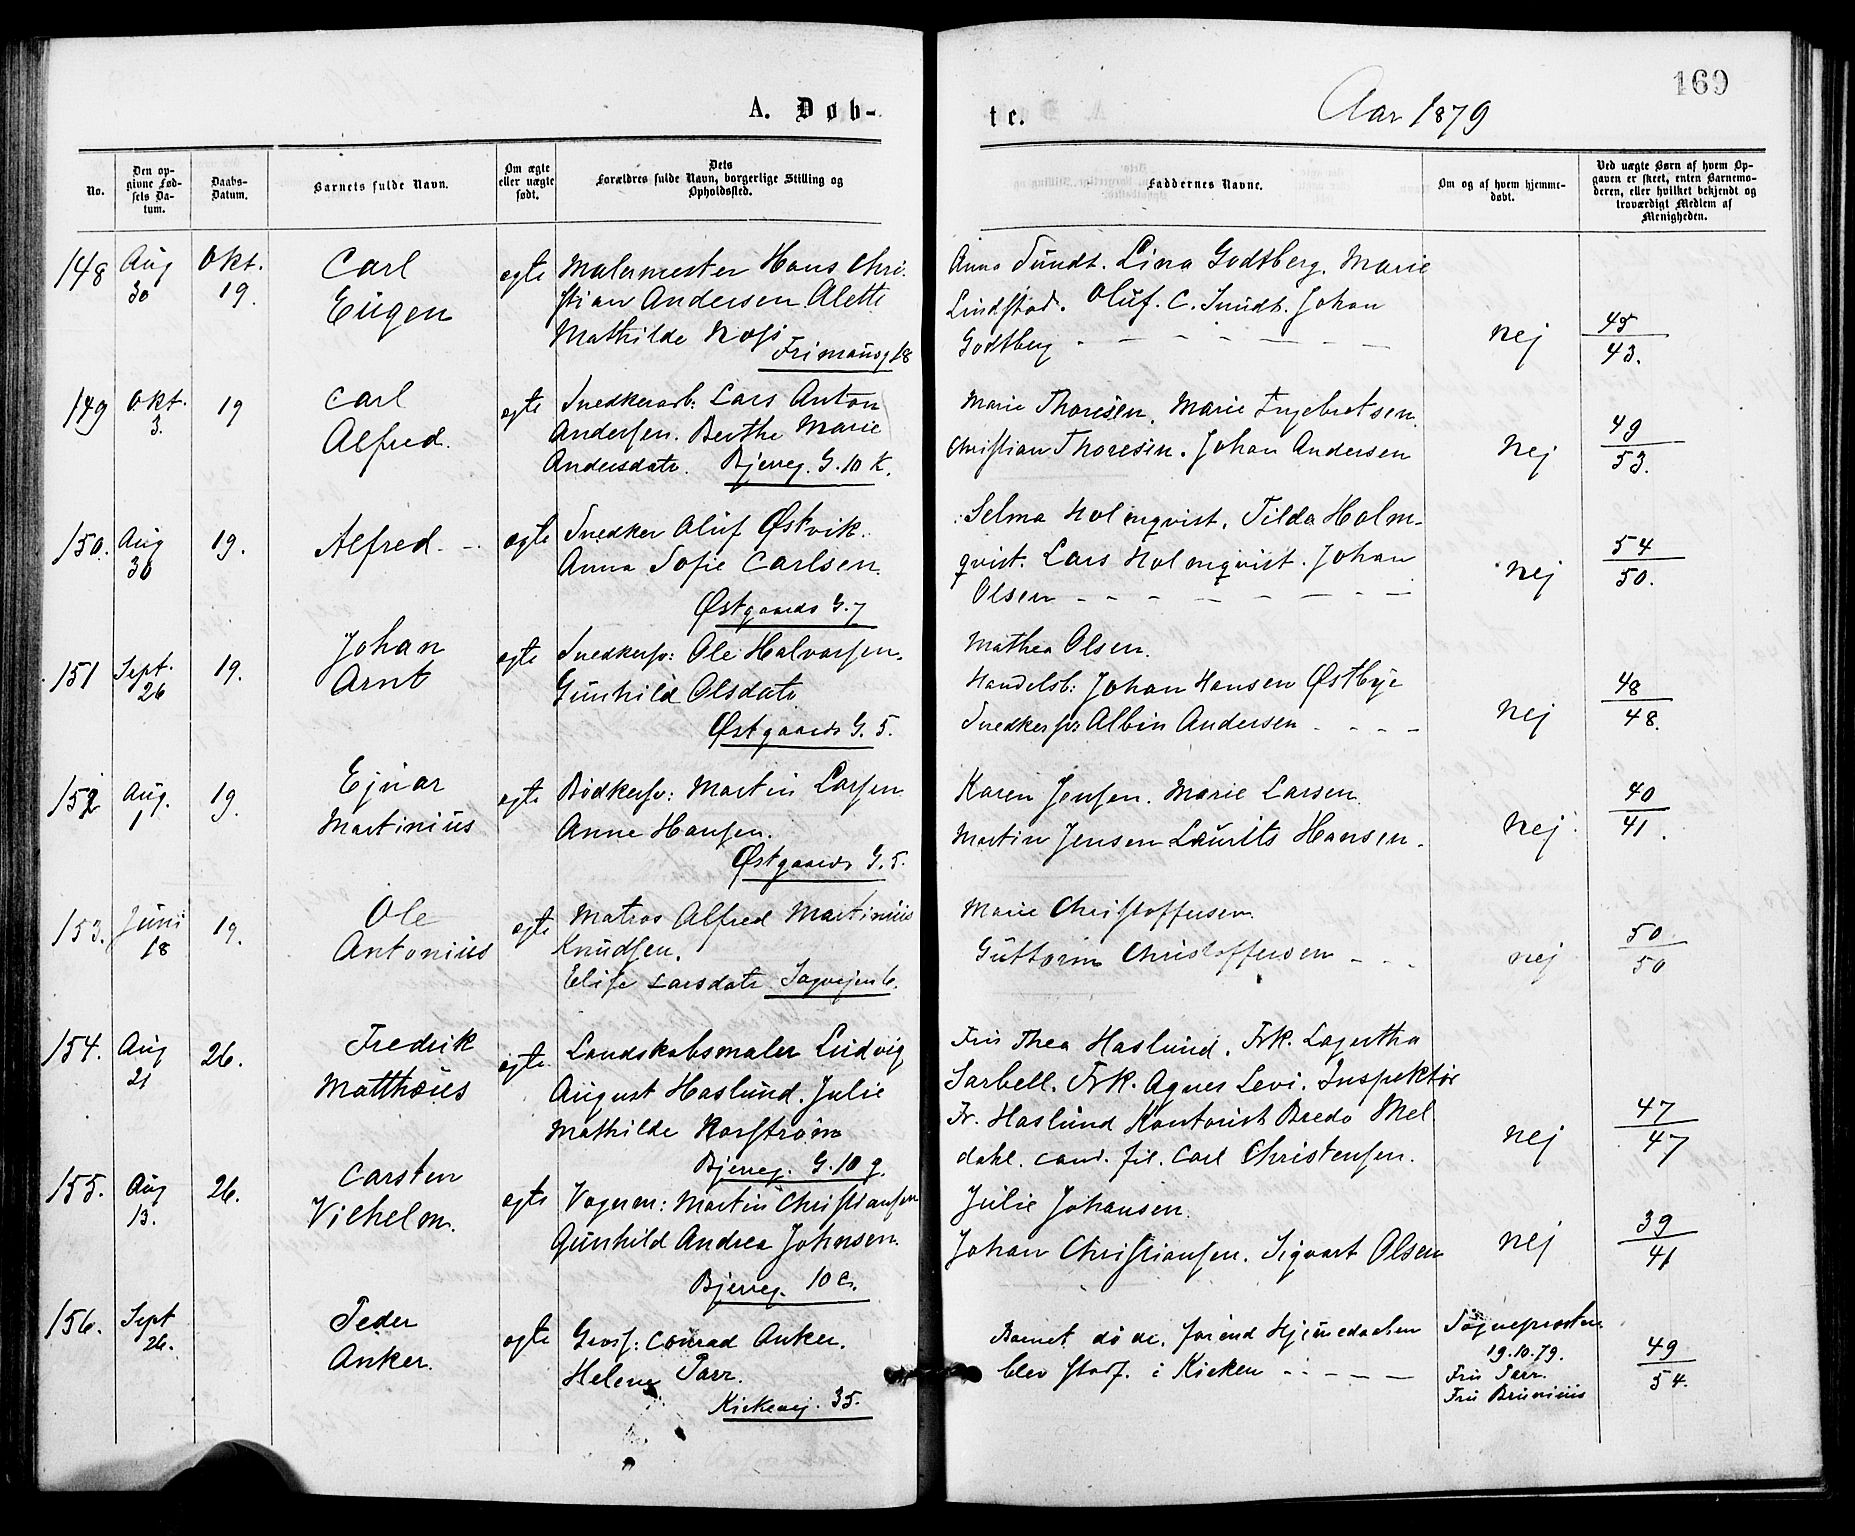 169
A. Døb-
te.
Aar 1879
No.
Den opgivne Fødsels Datum.
Daabs-Datum.
Barnets fulde Navn.
Om ægte eller uægte født.
Dets
Forældres fulde Navn, borgerlige Stilling og Opholdssted.
Faddernes Navne.
Om og af hvem hjemmedøbt.
Ved uægte Børn af hvem Opgaven er skeet, enten Barnemoderen, eller hvilket bekjendt og troværdigt Medlem af Menigheden.
148 Aug 30 Okt. 19. Carl Eugen ægte
Malermester Hans Chri-
stian Andersen Alette
Mathilde Ross
Frimansg 18
Anna Sundt. Lina Godtberg. Marie
Lindstad. Oluf. C. Sundt. Johan
Godtberg - - - - - -
nej
45
43.
149 Okt. 3. 19 Carl Alfred. ægte
Snedkerarb: Lars Anton
Andersen. Berthe Marie
Andersdatr. Bjerreg. G. 10 K.
Marie Thoresen. Marie Engebretsen.
Christian Thoresen. Johan Andersen
nej
49
53.
150. Aug 30 19. Alfred. - ægte
Snedker Oluf Østvik.
Anna Sofie Carlsen.
Østgaards G. 7
Selma Holmqvist. Tilda Holm-
qvist. Lars Holmqvist. Johan
Olsen - - - - - - -
nej
54
50.
151 Sept. 26 19. Johan Arnt ægte
Snedkersv: Ole Halvorsen.
Gunhild Olsdatr.
Østgaards G. 5.
Mathea Olsen.
Handelsb: Johan Hansen Østbye
Snedkersv Albin Andersen - - - -
nej
48
48.
152 Aug. 1 19. Ejnar Martinius ægte
Bødkersv: Martin Larsen
Anne Hansen.
Østgaards G. 5.
Karen Jensen. Marie Larsen.
Martin Jensen Laurits Hansen.
nej.
40
41.
153. Juni 18 19. Ole Antonius ægte
Matros Alfred Martinius
Knudsen.
Elise Larsdatr Sagvejen 6.
Marie Christoffersen
Guttorm Christoffersen - - -
nej
50
50
154. Aug 21 26. Fredrik Matthæus ægte
Landskabsmaler Ludvig
August Haslund. Julie
Mathilde Norstrøm
Bjerreg. G. 10 g.
Fru Thea Haslund. Frk. Lagertha
Sarbell. Frk. Agnes Levi. Inspektør
Fr. Haslund Kontorist Bredo Mel
dahl. cand. fil. Carl Christensen.
nej
47
47
155. Aug 13. 26. Carsten Vilhelm. ægte
Vognm: Martin Christiansen
Gunhild Andrea Johnsen.
Bjerreg. 10 c.
Julie Johansen.
Johan Christiansen. Sigvart Olsen
nej
39
41
156. Sept 26. Peder Anker. ægte
Gross: Conrad Anker.
Helene Parr.
Kirkevej. 35.
Barnet døde, førend Hjemmedaaben
blev stadf. i Kirken - - - - -
Sogneprosten
19.10.79.
Fru Parr.
Fru Brunius
49
54.